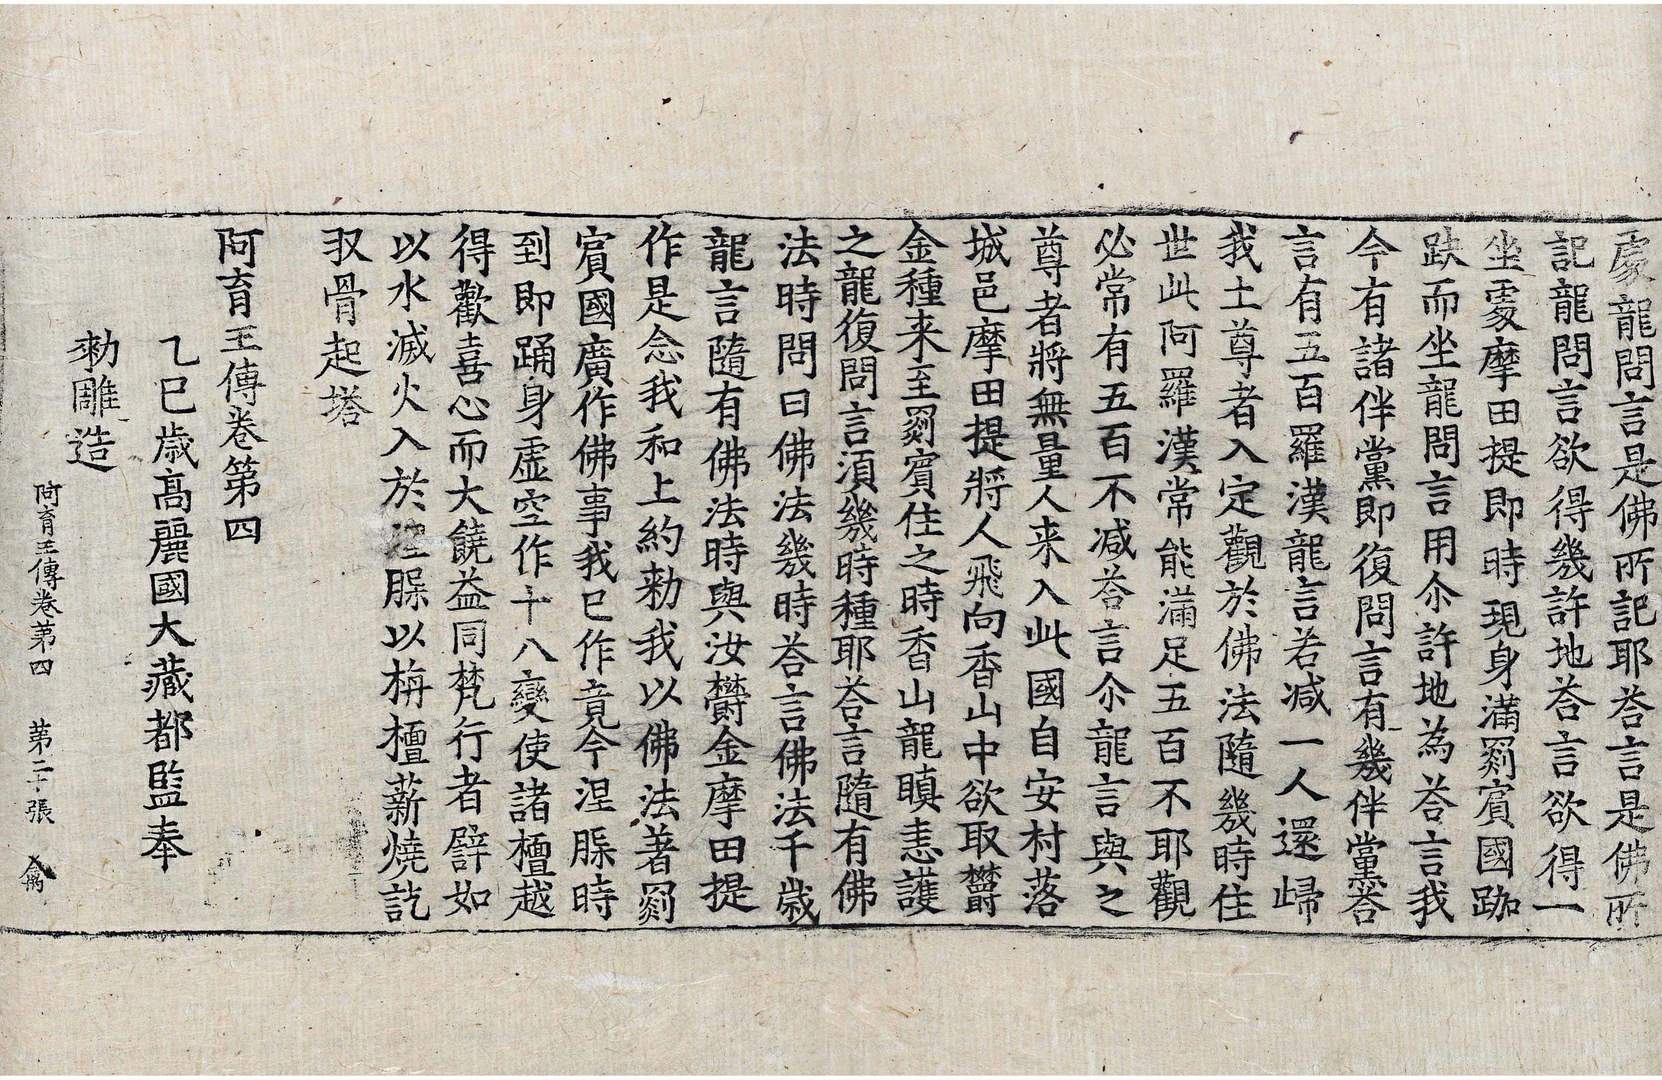 處龍問言是佛所記耶荅言是佛所
記龍問言欲得幾許地荅言欲得一
坐處摩田提即時現身滿罽賓國跏
趺而坐龍問言用尒許地為荅言我
今有諸伴黨即復問言有幾伴黨荅
言有五百羅漢龍言若减一人還歸
我土尊者入定觀於佛法隨幾時住
世此阿羅漢常能滿足五百不耶觀
必常有五百不减荅言尒龍言與之
尊者將無量人来入此國自安村落
城邑摩田提將人飛向香山中欲取欝
金種来至罽賓住之時香山龍瞋恚護
之龍復問言湏幾時種耶荅言隨有佛
法時問曰佛法幾時荅言佛法千歲
龍言隨有佛法時與汝欝金摩田提
作是念我和上約勑我以佛法著罽
賓國廣作佛事我已作竟今涅脤時
到即踊身虛空作十八變使諸檀越
得歡喜心而大饒益同梵行者譬如
以水滅火入於涅脤以栴檀薪燒訖
収骨起塔
阿育王傳卷第四
乙巳歲髙麗國大藏都監奉
勑雕造
阿育王傳卷第四 第二十張